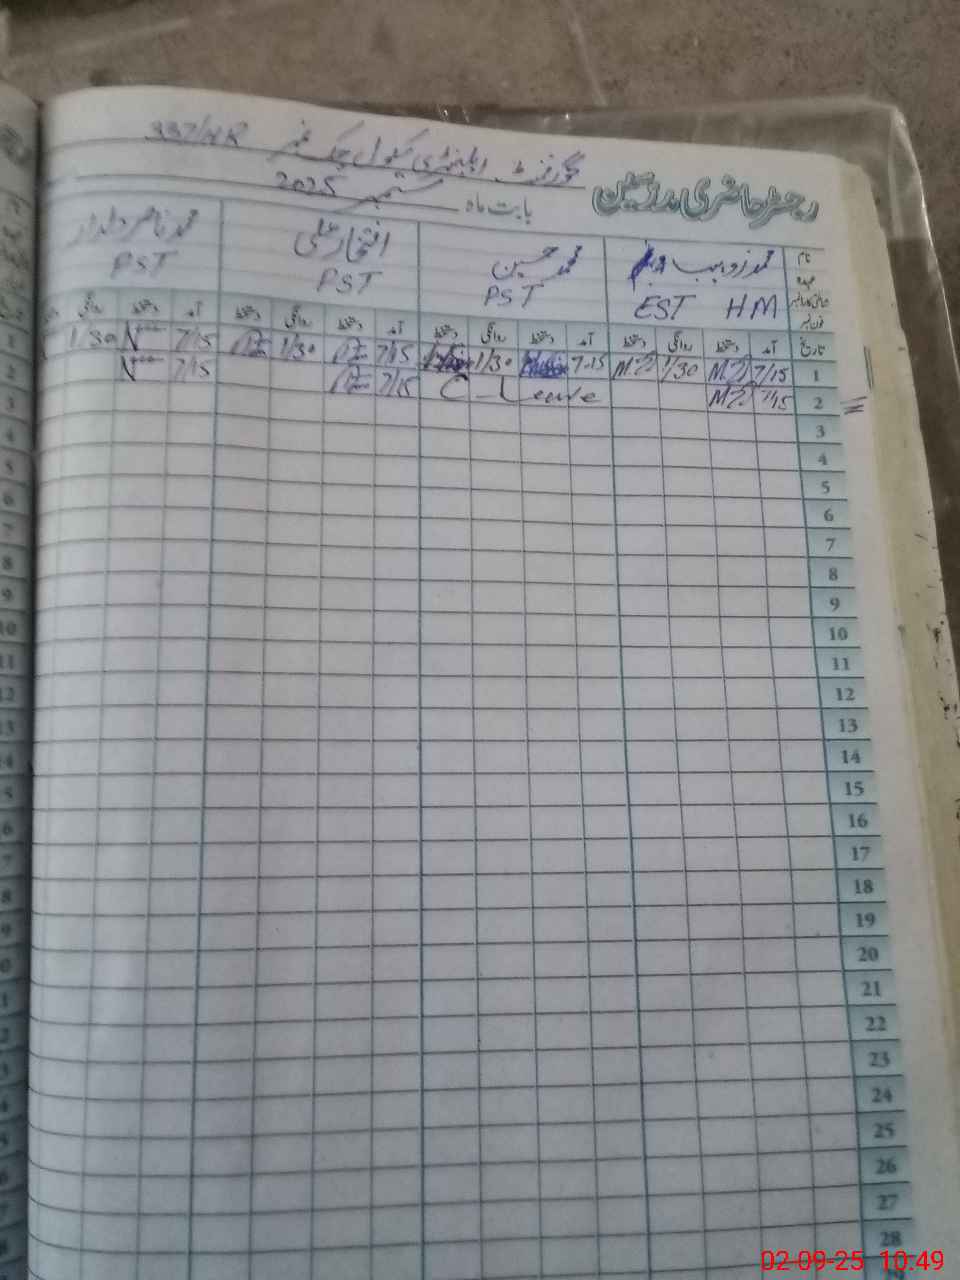 گورنمنٹ ایلیمنٹری سکول چک نمبر 337/HR
رجسٹر حاضری مدرسین
بابت ماہ ستمبر 2025
نام محمد زوہیب محمد حسین افتخار علی محمد ناصر
عہدہ EST HM PST PST PST
تاریخ آمد دستخط روانگی دستخط آمد دستخط روانگی دستخط آمد دستخط روانگی دستخط آمد دستخط روانگی
1 7/15 1/30 7-15 1/30 7/15 1/30 7/15 1/30
2 7/15 C-Leave 7/15 7/15
3
4
5
6
7
8
9
10
11
12
13
14
15
16
17
18
19
20
21
22
23
24
25
26
27
28
02-09-25 10:49